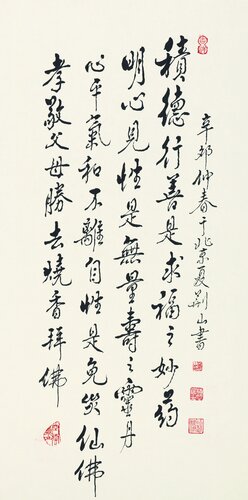 辛卯仲春于北京夏荆山書
積德行善是求福之妙葯
明心見性是無量壽之靈丹
心平氣和不離自性是免災仙佛
孝敬父母勝去燒香拜佛